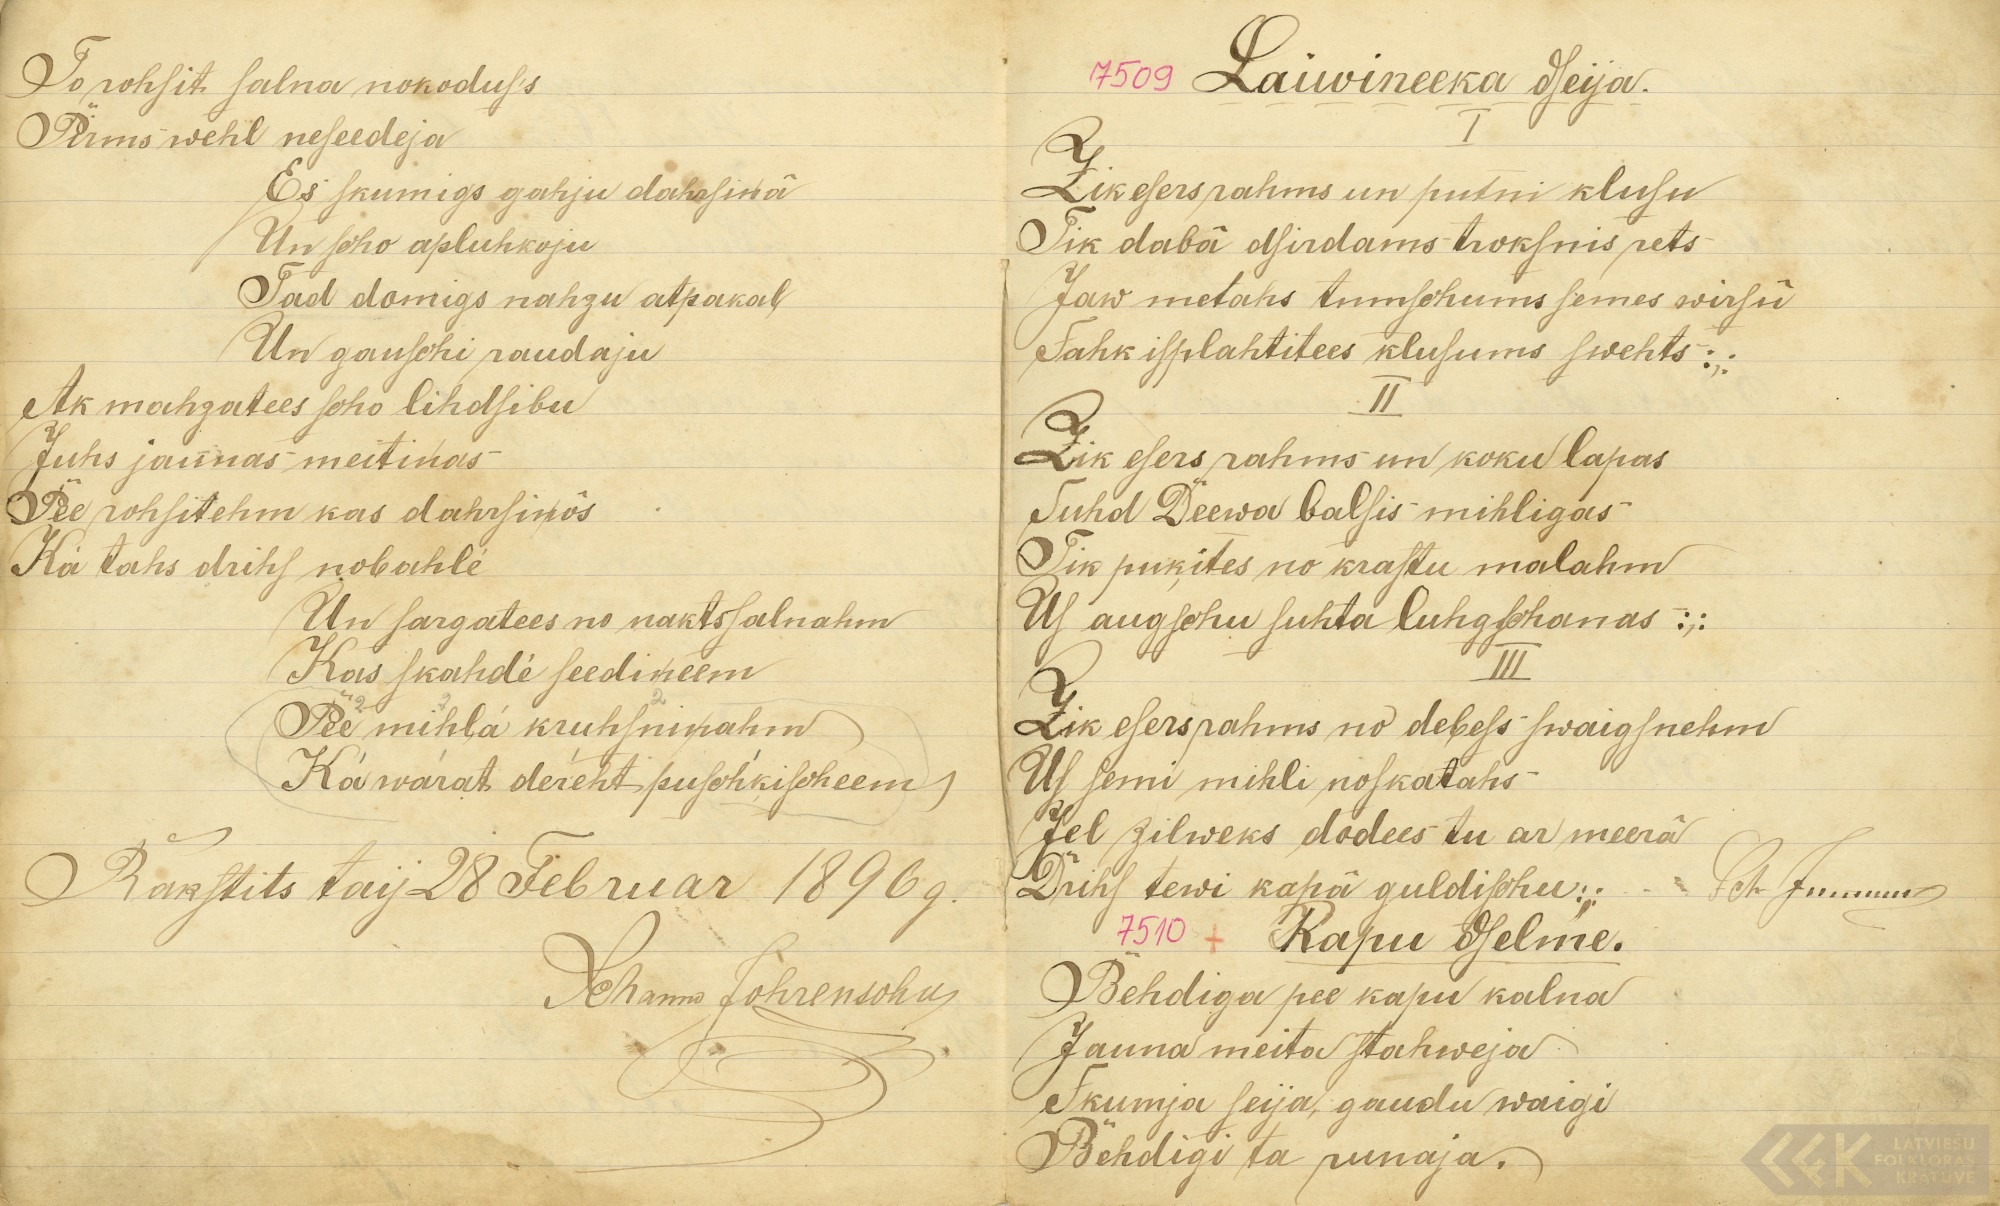 To rohsit salna nokoduss
Pirms wehl neseedeja
Es skumigs gahju dahrsinâ
Un scho apluhkoju
Tad domigs nahzu atpakal
Un gauschi raudaju
Ak mahzatees scho lihdsibu
Juhs jaunas meitinas
Pee rohsitehm kas dahrsinôs
Ká tahs drihs nobahlé
Un sargatees no nakts salnahm
Kas skahdé seedineem
Pee mihlá kruhsninahm
Ká wárat déréht puschkischeem
Rakstits taij 28 Februar 1896 g.
7509 Lauwineeka dseija.
I
Zik esers rahms un putni klusu
Tik dabâ dsirdams troksnis rets
Jaw metahs tumschums semes wirsû
Sahk isplahtitees klusums swehts :,:
II
Zik esers rahms un koku lapas
Suhd Deewa balsis mihligas
Tik pukites no krastu malahm
Us augschu suhta luhgschanas :,:
III
Zik esers rahms no debess swaigsnehm
Us semi mihli noskatahs
Jel zilweks dodees tu ar meerâ
Drihs tewi kapâ guldischu :,:
7510 + Kapu dselme.
Behdiga pee kapu kalna
Jauna meita stahweja
Skumja seija, gaudu waigi
Behdigi ta runaja.
LATVIEŠU
FOLKLORAS
KRĀTUVE